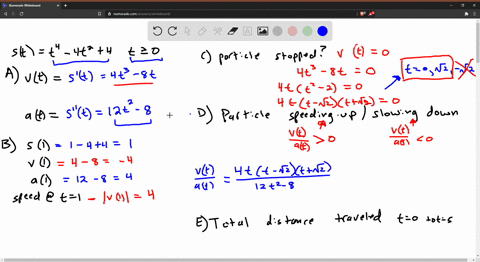 s(t) = t⁴ - 4t² + 4   t ≥ 0
A) v(t) = s'(t) = 4t³ - 8t
a(t) = s''(t) = 12t² - 8
B) s(1) = 1 - 4 + 4 = 1
v(1) = 4 - 8 = -4
a(1) = 12 - 8 = 4
speed @ t=1 - |v(1)| = 4
C) particle stopped? v(t) = 0
4t³ - 8t = 0
4t(t² - 2) = 0
4t(t-√2)(t+√2) = 0
t = 0, √2, -√2
D) Particle speeding up / slowing down
v(t)/a(t) > 0   v(t)/a(t) < 0
v(t)/a(t) = 4t(t-√2)(t+√2)/12t² - 8
E) Total distance traveled t=0 to t=5